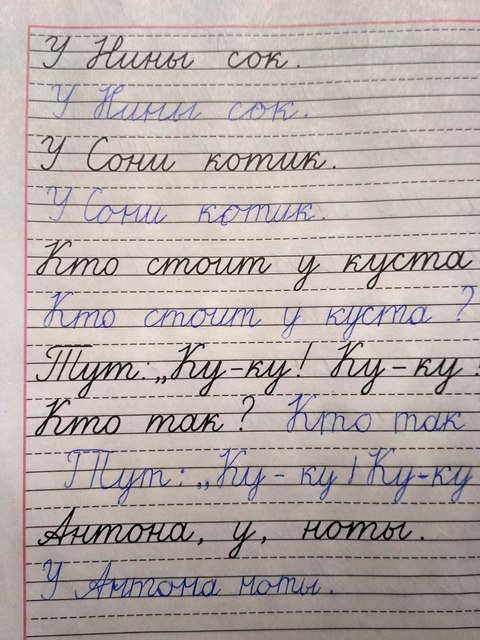 У Нины сок.
У Нины сок.
У Сони котик.
У Сони котик.
Кто стоит у куста
Кто стоит у куста ?
Тут: „Ку-ку! Ку-ку!
Кто так? Кто так
Тут: „Ку-ку! Ку-ку
Антона, у, ноты.
У Антона ноты.